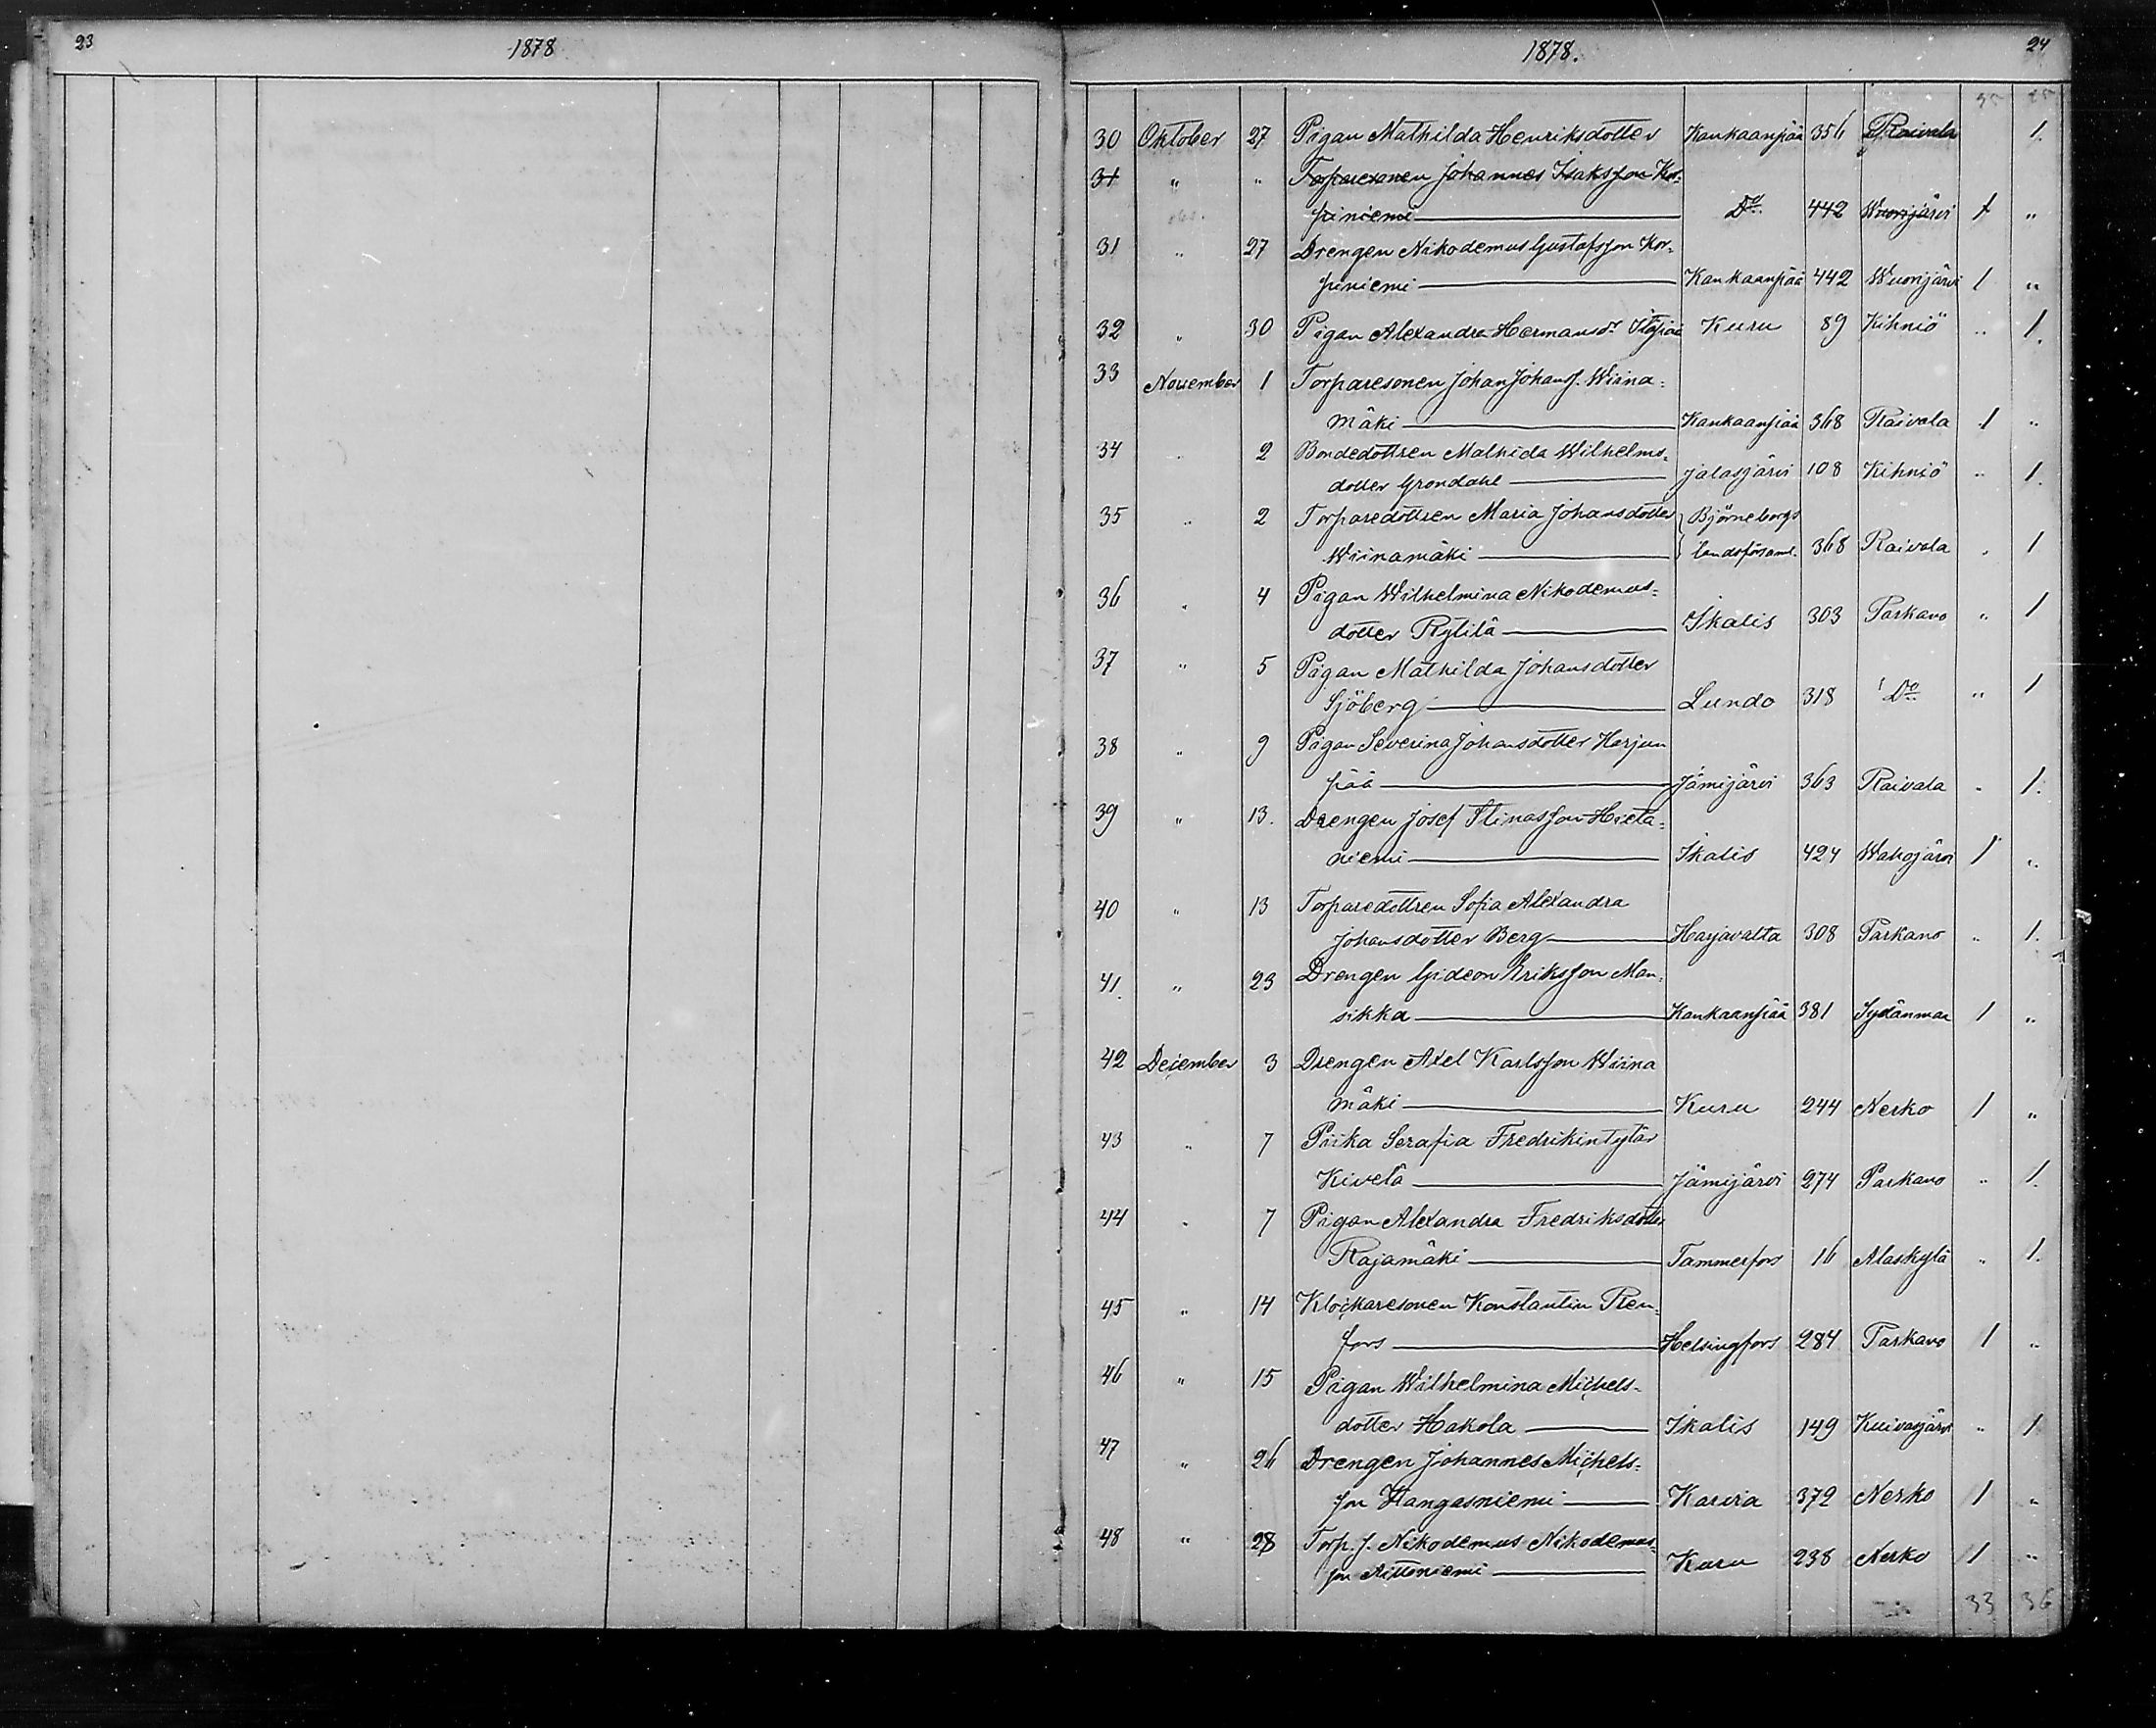 23 1878
1878. 24
30 Oktober 27 Pigan Mathilda Henriksdotter Kankaanpää 356 Raivala 1.
31 " " Torparesonen Johannes Isaksson Kor-
piniemi Do 442 Wuorijärvi 1 "
31 " 27 Drengen Nikodemus Gustafsson Kor-
piniemi Kankaanpää 442 Wuorijärvi 1 "
32 " 30 Pigan Alexandra Hermansdr Kuru 89 Kihniö " 1.
33 November 1 Torparesonen Johan Johanss. Wiina-
mäki Kankaanpää 368 Raivala 1 "
34 " 2 Bondedottren Mathilda Wilhelms-
dotter Grondahl Jalasjärvi 108 Kihniö " 1.
35 " 2 Torparedottren Maria Johansdotter Björneborgs
Wiinamäki landsförsaml. 368 Raivala " 1
36 " 4 Pigan Wilhelmina Nikodemus-
dotter Rytilä Ikalis 303 Parkano " 1
37 " 5 Pigan Mathilda Johansdotter
Sjöberg Lundo 318 Do " 1
38 " 9 Pigan Severina Johansdotter Harjun
pää Jämijärvi 363 Raivala " 1.
39 " 13. Drengen Josef Hieta-
niemi Ikalis 424 Wahojärvi 1 "
40 " 13 Torparedottren Sofia Alexandra
Johansdotter Berg Harjavalta 308 Parkano " 1.
41. " 23 Drengen Gideon Eriksson Man-
sikka Kankaanpää 381 Sydänmaa 1 "
42 December 3 Drengen Axel Karlsson Wiina
mäki Kuru 244 Nerko 1 "
43 " 7 Piika Serafia Fredrikintytär
Kivelä Jämijärvi 274 Parkano " 1.
44 " 7 Pigan Alexandra Fredriksdotter
Rajamäki Tammerfors 16 Alaskylä " 1.
45 " 14 Klockaresonen Konstantin Ren-
fors Helsingfors 284 Parkano 1 "
46 " 15 Pigan Wilhelmina Michels-
dotter Hakola Ikalis 149 Kuivasjärvi " 1
47 " 26 Drengen Johannes Michels-
son Kangasniemi Karvia 372 Nerko 1 "
48 " 28 Torp. s. Nikodemus Nikodemus-
son Aittoniemi Kuru 238 Nerko 1 "
33 36